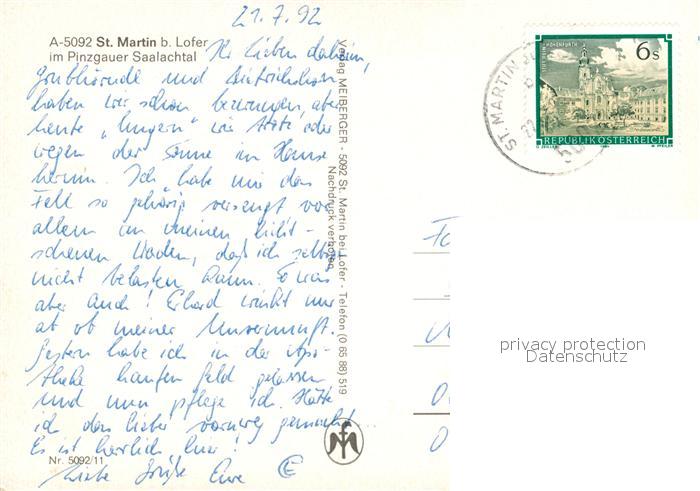 21.7.92
A-5092 St. Martin b. Lofer
im Pinzgauer Saalachtal
Ihr Lieben daheim,
Grubhörndl und Dietrichshorn
haben wir schon bezwungen, aber
heute "hungern" wir trotz oder
wegen der Sonne im Hause
herum. Ich habe mir das
Fell so gehörig versengt vor
allem an meinen
schenen Waden, daß ich selbst
nicht belasten kann. So was
aber auch! Erhard winkt nur
ab ob meiner Unvernunft.
Gestern habe ich in der Apo-
theke haufen Geld gelassen
und nun pflege ich. Hätte
ich das lieber vorweg gemacht.
Es ist herrlich hier!
Nr. 5092/11
Liebe Grüße Eure
Verlag MEIBERGER - 5092 St. Martin bei Lofer - Telefon (0 65 88) 519
Nachdruck verboten
6s
STIFT REIN-HOHENFURTH
REPUBLIK ÖSTERREICH
ST. MARTIN
privacy protection
Datenschutz